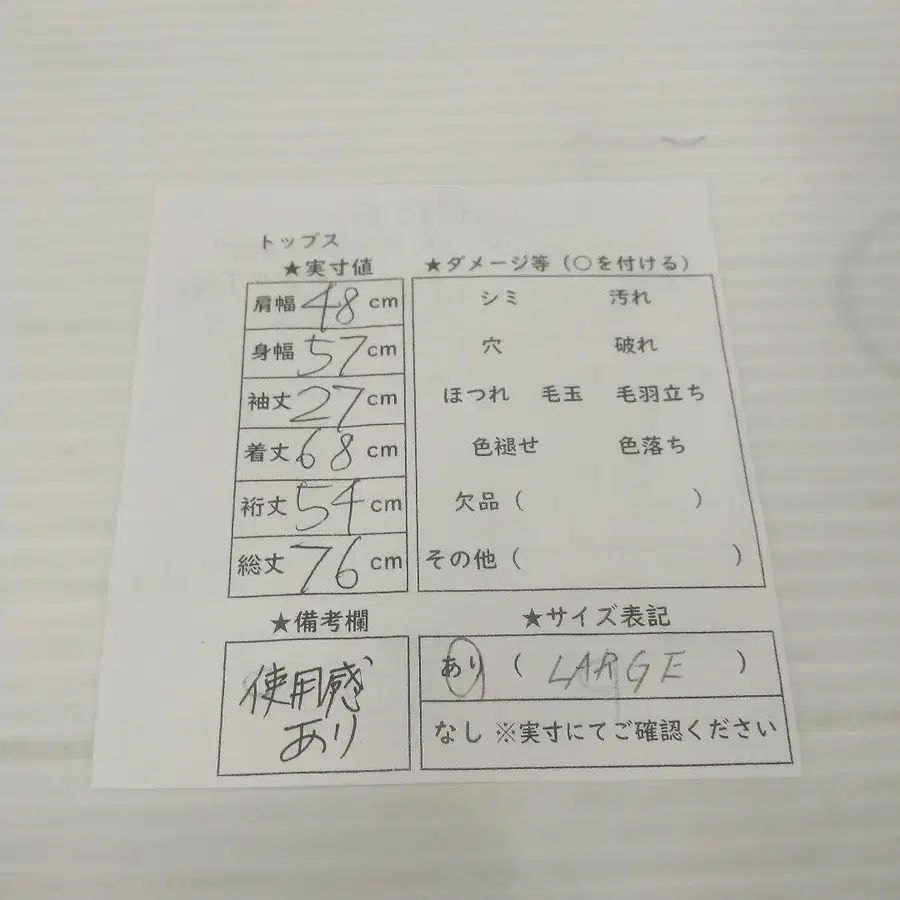 トップス
★実寸値
肩幅 48 cm
身幅 57 cm
袖丈 27 cm
着丈 68 cm
裄丈 54 cm
総丈 76 cm
★ダメージ等（○を付ける）
シミ 汚れ
穴 破れ
ほつれ 毛玉 毛羽立ち
色褪せ 色落ち
欠品（ ）
その他（ ）
★備考欄
使用感
あり
★サイズ表記
あり（ LARGE ）
なし ※実寸にてご確認ください